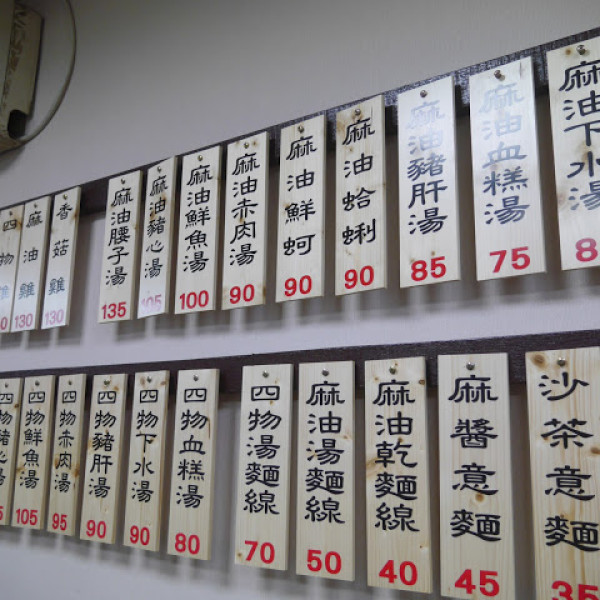 四物雞
麻油雞
130
香菇雞
130
麻油腰子湯
135
麻油豬心湯
105
麻油鮮魚湯
100
麻油赤肉湯
90
麻油鮮蚵
90
麻油蛤蜊
90
麻油豬肝湯
85
麻油血糕湯
75
麻油下水湯
四物豬心湯
四物鮮魚湯
105
四物赤肉湯
95
四物豬肝湯
90
四物下水湯
90
四物血糕湯
80
四物湯麵線
70
麻油湯麵線
50
麻油乾麵線
40
麻醬意麵
45
沙茶意麵
35